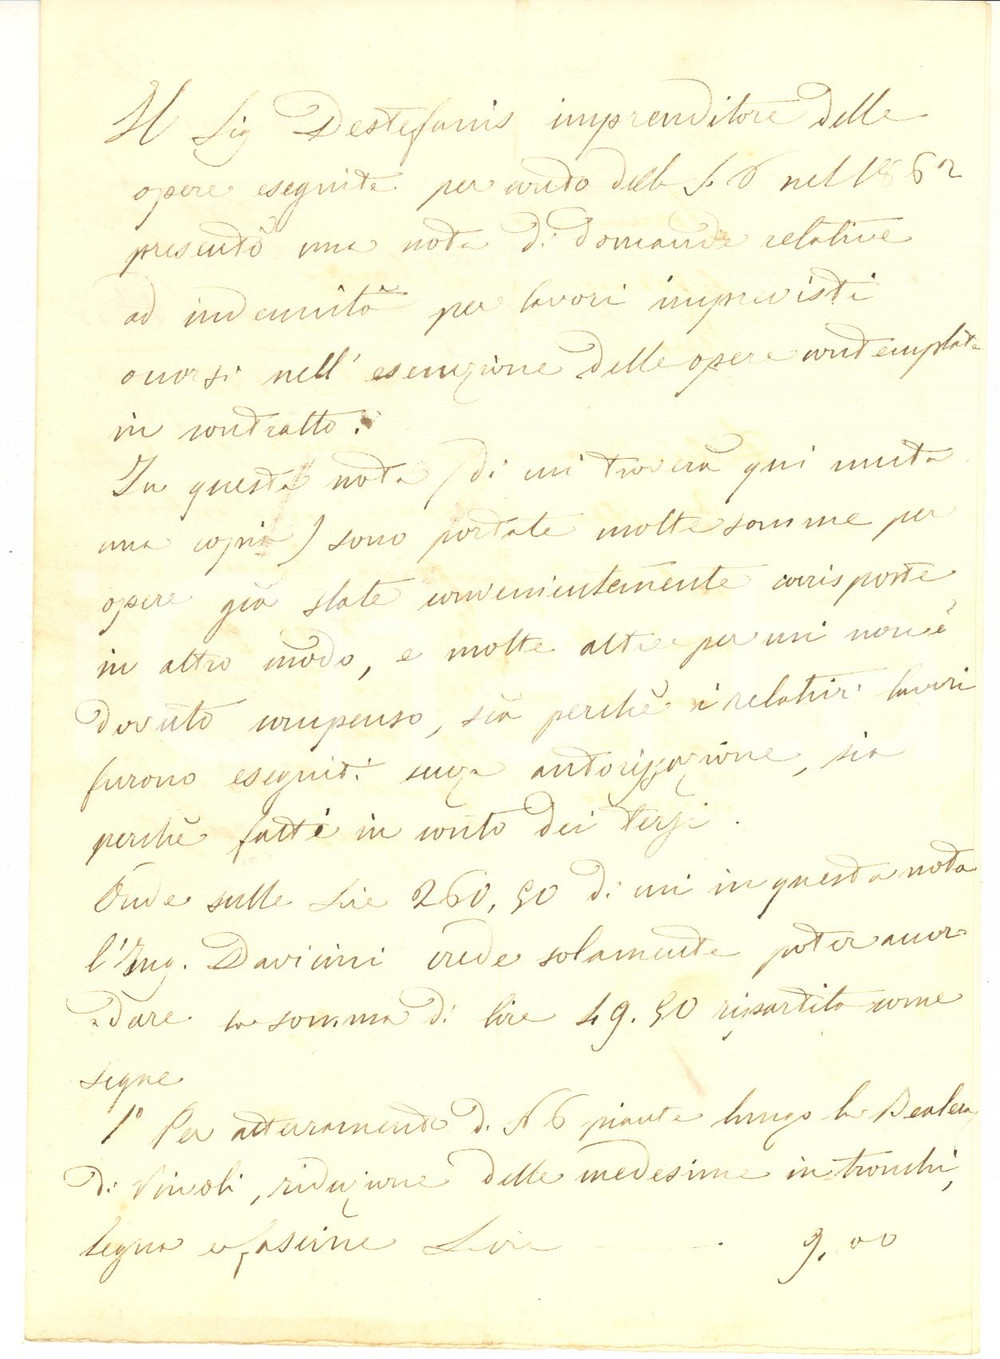 Il Sig Destefanis imprenditore delle
opere eseguite per conto della S. V nel 1862
presentò una nota di domande relative
ad indennità per lavori imprevisti
occorsi nell' esecuzione delle opere contemplate
in contratto.
In questa nota (di cui troverà qui unita
una copia) sono portate molte somme per
opere già state convenientemente corrisposte
in altro modo, e molte altre per cui non è
dovuto compenso, sia perchè i relativi lavori
furono eseguiti senza autorizzazione, sia
perchè fatti in conto dei terzi.
Onde sulle Lire 260,50 di cui in questa nota
l'Ing. Davicini crede solamente poter accor
dare la somma di lire 49.50 ripartita come
segue
1° Per atterramento di piante lungo la Bealera
di Vincoli, riduzione delle medesime in tronchi,
legna e fascine Lire 9,00